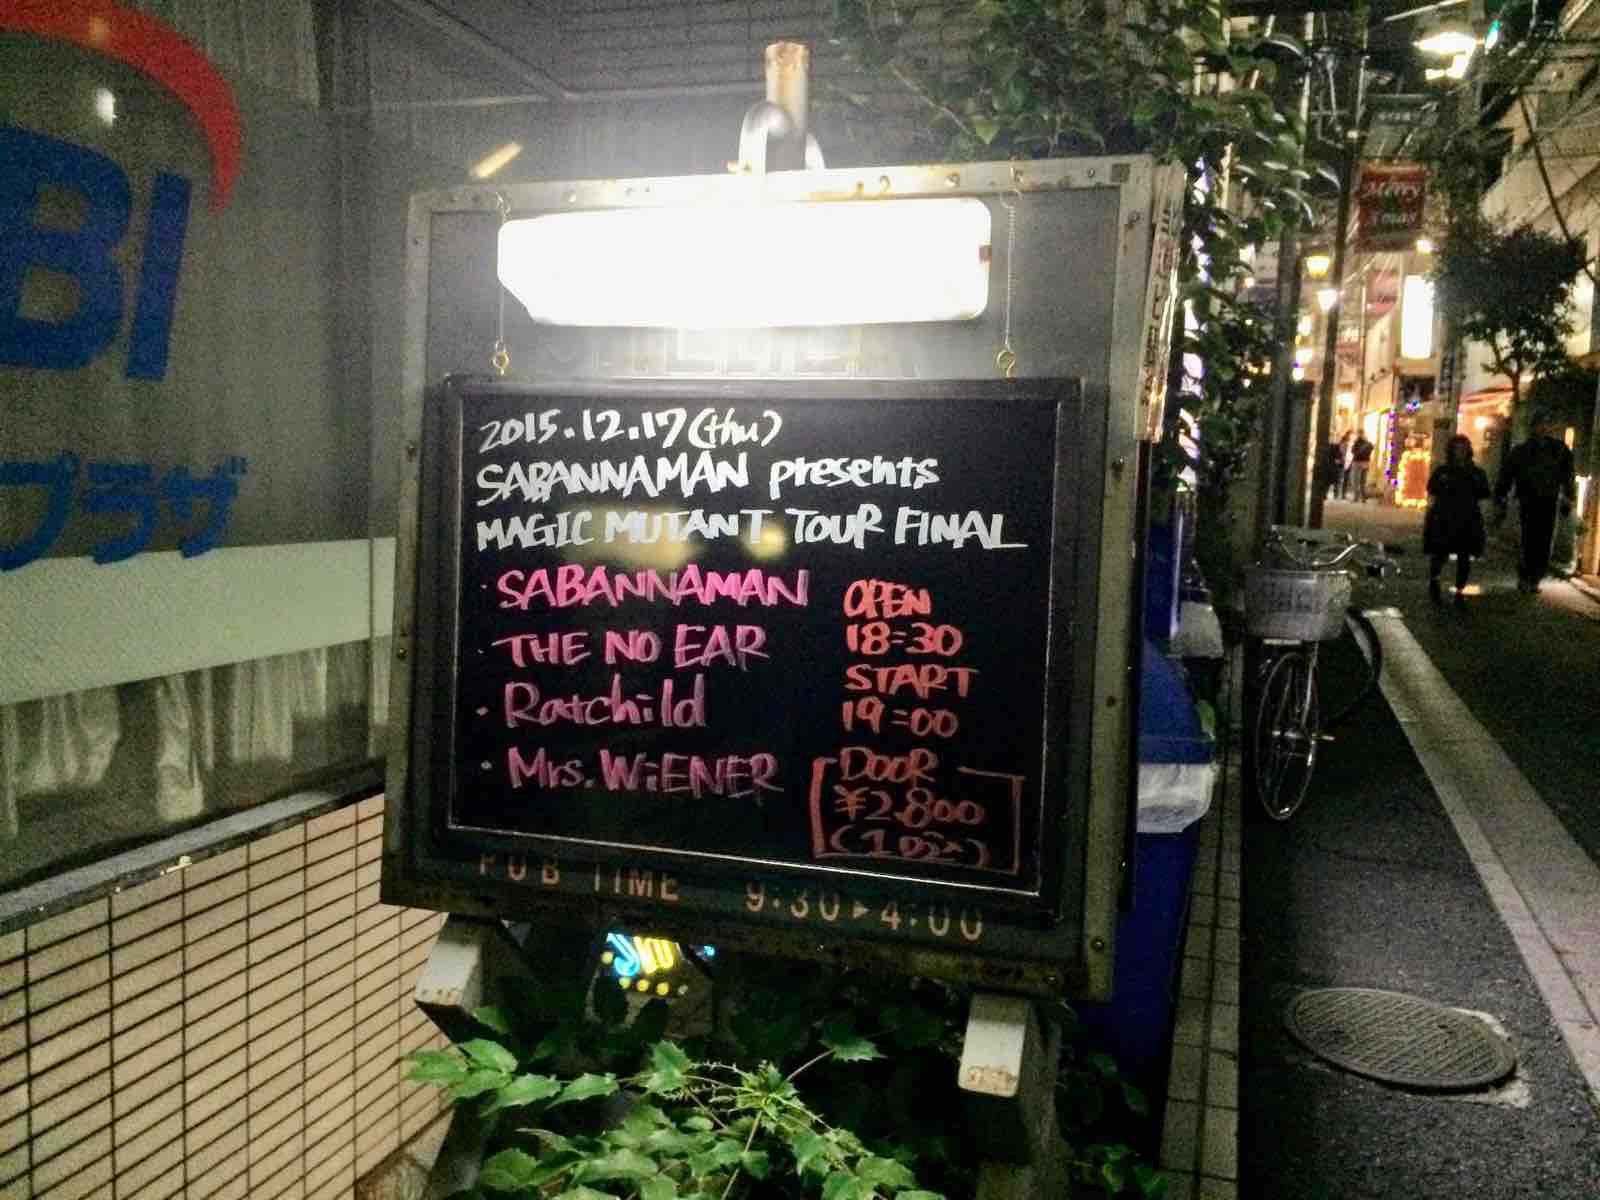 BI
プラザ
Merry
Xmas
2015.12.17(thu)
SABANNAMAN presents
MAGIC MUTANT TOUR FINAL
・SABANNAMAN
・THE NO EAR
・Ratchild
・Mrs. WiENER
OPEN
18:30
START
19:00
DOOR
¥2.800
(1D込)
PUB TIME 9:30▸4:00